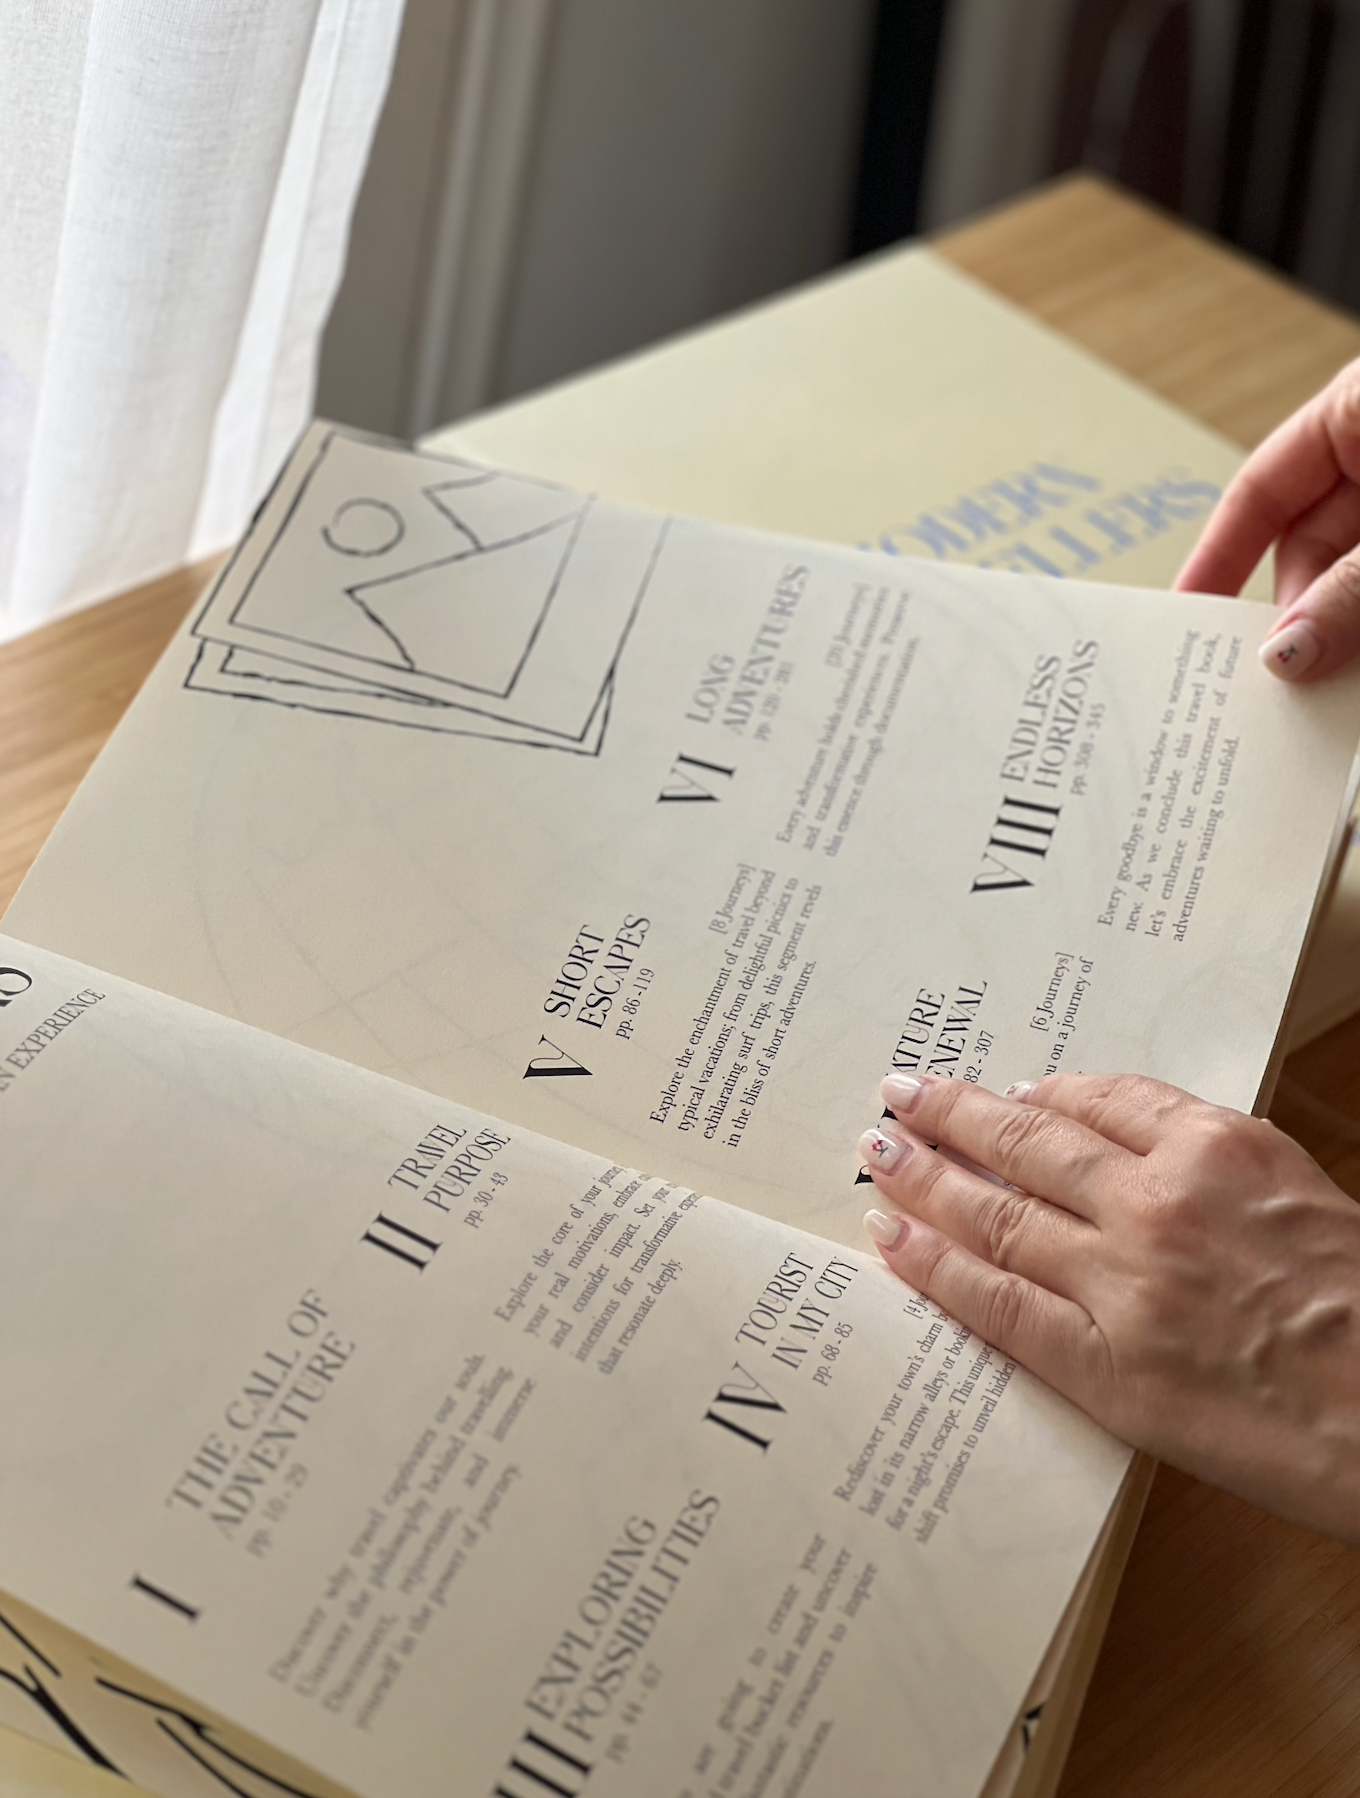 EXPERIENCE
I
THE CALL OF
ADVENTURE
pp. 10 - 29
Discover why travel captivates our souls.
Uncover the philosophy behind travelling.
Disconnect, rejuvenate, and immerse
yourself in the power of journey.
II
TRAVEL
PURPOSE
pp. 30 - 43
Explore the core of your journey,
your real motivations, embrace
and consider impact. Set your
intentions for transformative
that resonate deeply.
III
EXPLORING
POSSIBILITIES
pp. 44 - 67
are going to create your
travel bucket list and uncover
resources to inspire
IV
TOURIST
IN MY CITY
pp. 68 - 85
[4
Rediscover your town's charm
lost in its narrow alleys or
for a night's escape. This unique
shift promises to unveil hidden
V
SHORT
ESCAPES
pp. 86 -119
[8 Journeys]
Explore the enchantment of travel beyond
typical vacations; from delightful picnics to
exhilarating surf trips, this segment revels
in the bliss of short adventures.
VI
LONG
ADVENTURES
pp. 120 - 281
Every adventure holds cherished memories
and transformative experiences. Preserve
this essence through documentation.
ATURE
ENEWAL
82 - 307
[6 Journeys]
on a journey of
VIII
ENDLESS
HORIZONS
pp. 308 - 345
Every goodbye is a window to something
new. As we conclude this travel book,
let's embrace the excitement of future
adventures waiting to unfold.
ODERN
ELLERS